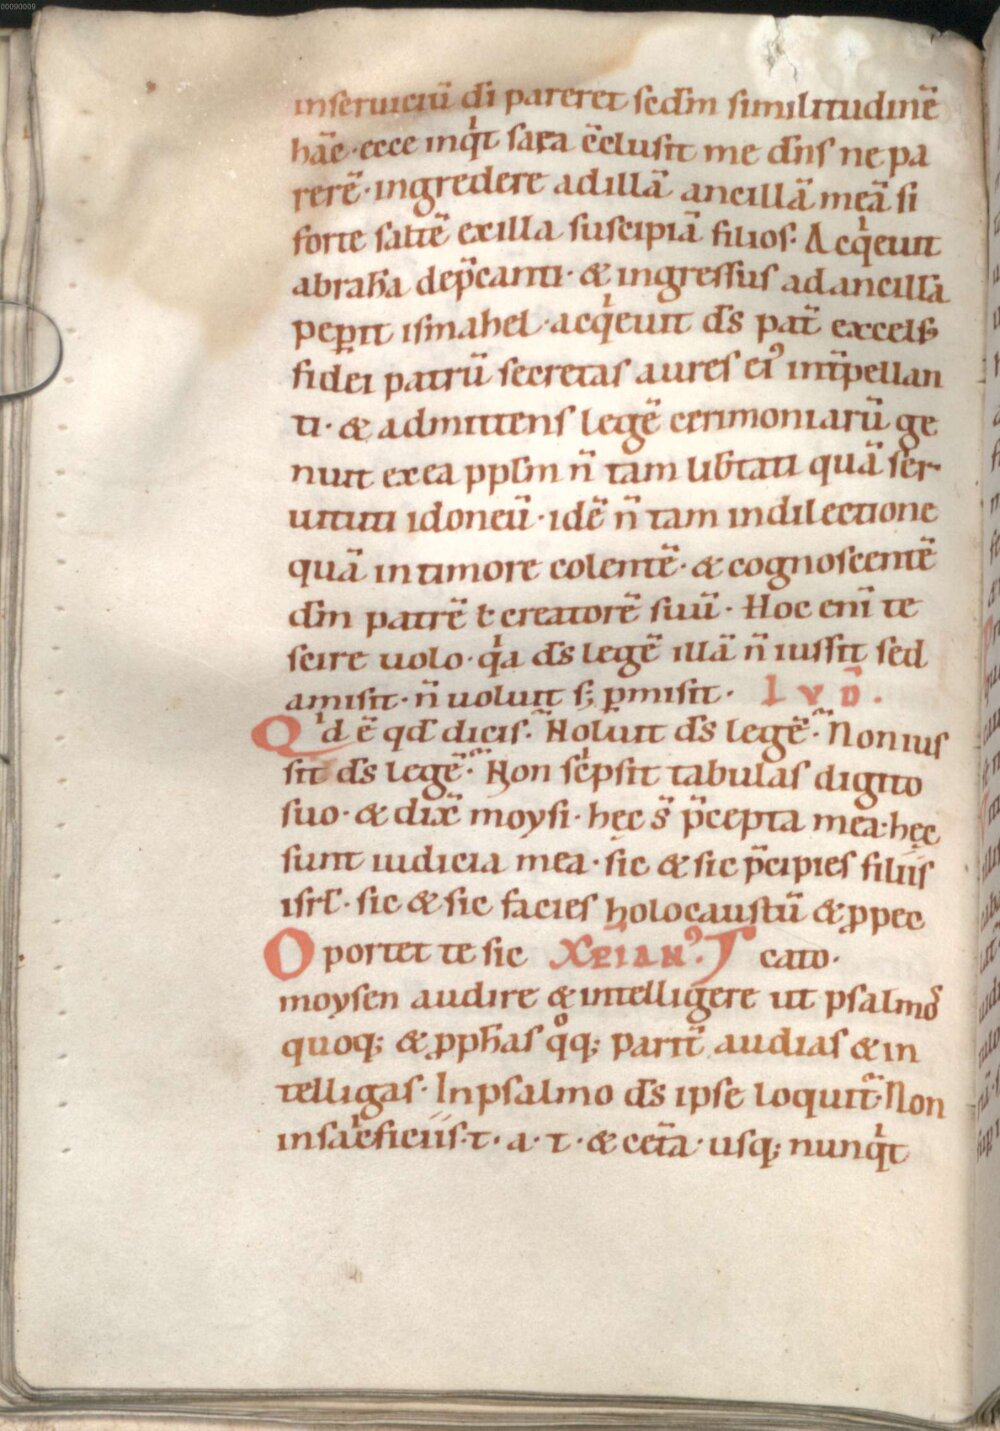 00090009
inseruiciū dī pareret sedm̄ similitudinē
hāc · ecce inqͥt sara c̄clusit me dn̄s ne pa
rerē · ingredere ad illā ancillā meā si
forte saltē ex illa suscipiā filios · Acqͥeuit
abrah̄a dep̄canti · & ingressus ad ancillā
peꝑit ismahel · acqͥeuit ds̄ pat̄ excels
fidei patrū secretas aures eiꝰ int̄pellan
ti · & admittens legē cerimoniarū ge
nuit ex ea ppl̄m n̄ tam lib̄tati quā ser-
uituti idoneū · idē n̄ tam in dilectione
quā in timore colentē · & cognoscentē
dm̄ patrē t creatorē suū · Hoc enī te
scire uolo · qͥa ds̄ legē illā n̄ iussit sed
amisit · n̄ uoluit s; ꝑmisit · IVD̄ .
Qͥd ē qd̄ dicis · Noluit ds̄ legē · Non ius
sit ds̄ legē · Non scͥpsit tabulas digito
suo · & dix̄ moysi · hęc s̄ p̄cepta mea · hęc
sunt iudicia mea · sic & sic p̄cipies filiis
isrl̄ · sic & sic facies holocaustū & ꝓ pec
Oportet te sic XPIANꝰ. cato ·
moysen audire & intelligere ut psalmos
quoq; & ꝓph̄as qͦq; part̄ audias & in
telligas · In psalmo ds̄ ipse loquit̄ · Non
in sacͥficiis · t · a · t · & cet̄a · usq; nunqͥt